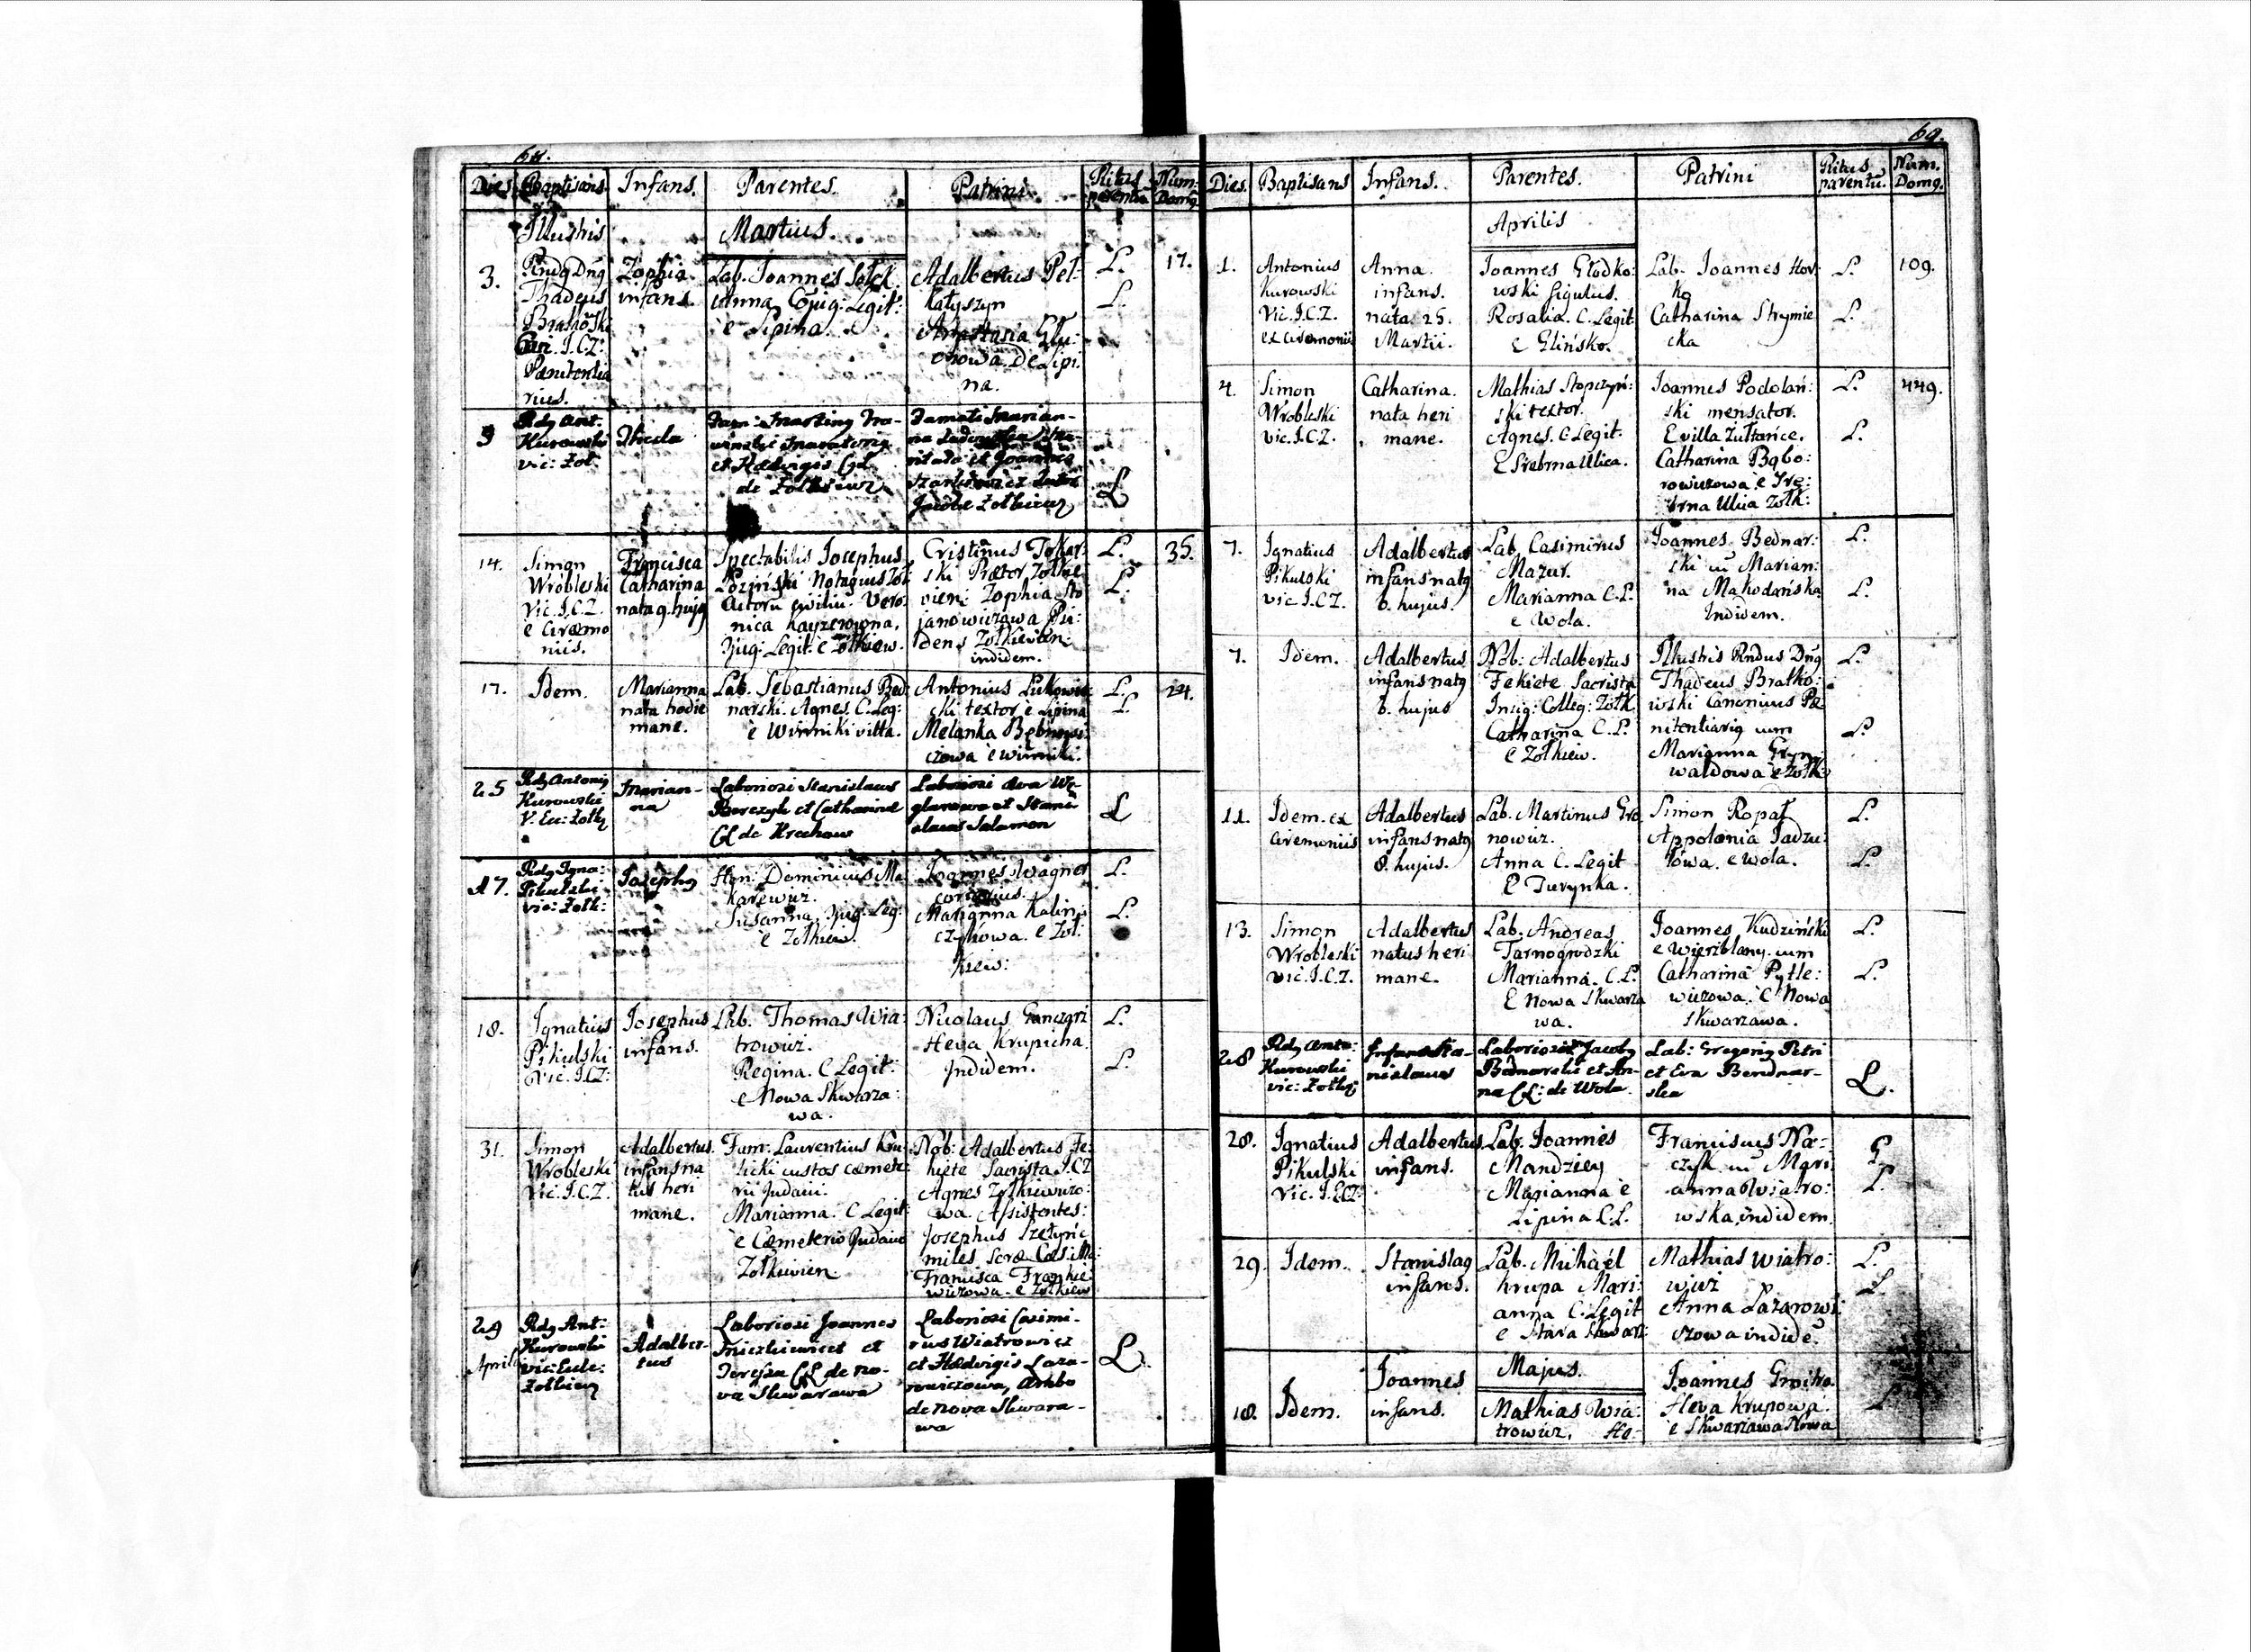 68.
Dies. Baptisans. Infans. Parentes. Patrini. Ritus parentu. Num: Domq.
Martius.
3.
Illustris
Rndq Dnq
Thadeus
Pænitentia
rius.
Zophia
infans.
Lab. Joannes
Anna Cjuig: Legit:
è Lipina.
Adalbertus Pel-
Anastasia
De Lipi:
na.
L.
L.
17.
Rdq Ant.
Kurowski
vic: Zoł.
et Hedvigis
de Zołkiew
Marian-
et Joannes
L
14.
Simon
Wrobleski
Vic. I.C.Z.
è Ciræmo
niis.
Francisca
Catharina
nata 9. hujq
Spectabilis Josephus
Vero:
nica Kayzerowna.
Cjug: Legit: è Zołkiew.
Cristinus Tokar:
ski Prætor Zołkie
vien: Zophia Sto
janowiczowa
Zołkievien:
indidem.
L.
L.
35.
17.
Idem.
Marianna
nata hodie
mane.
Lab. Sebastianus Bed
narski. Agnes. C. Leg:
è Winniki villa.
Antonius
ski textor è Lipina
Melanka
czowa è Winniki.
L.
L.
24.
25
Rdq Antoniq
Kurowski
V. Ec: Zołkq
Marian-
na
Laboriosi Stanislaus
et Catharina
CL de Krechow
Laboriosi Ava
et Stani
slaus Salamon
L
17.
Rdq Igna:
Pikulski
vic: Zołk:
Josephq
Hon: Dominicus Ma
karewicz.
Susanna. Cjug: Leg:
è Zołkiew.
Joannes Wagner
Marianna Kalin:
czykowa. è Zoł:
kiew:
L.
L.
18.
Ignatius
Pikulski
Vic. I.C.Z:
Josephus
infans.
Lab. Thomas Wia:
trowicz.
Regina. C Legit:
è Nowa Skwarza:
wa.
Nicolaus
Heva Krupicha.
Indidem.
L.
L.
31.
Simon
Wrobleski
Vic. I.C.Z.
Adalbertus.
infans na
tus heri
mane.
Fam: Laurentius Kru
licki custos cæmete
rii Judaici.
Marianna. C Legit:
è Cæmeterio Judaico
Zołkievien.
Nob: Adalbertus Fe:
kiete Sacrista I.C.Z
Agnes Zołkiewiczo:
wa. Assistentes:
Josephus
miles
Francisca
wiczowa. è Zołkiew
29
Aprilq
Rdq Ant:
Kurowski
vic: Eccle:
Zołkiew
Adalber-
tus
Laboriosi Joannes
et
CL de no-
va Skwarawa
Laboriosi Casimi-
rus Wiatrowicz
et Hedvigis Laza-
rowiczowa, Ambo
de nova Skwara-
wa
L.
69.
Dies. Baptisans Infans. Parentes. Patrini Ritus parentu. Num. Domq.
Aprilis
1.
Antonius
Kurowski
Vic. I.C.Z.
ex ciremoniis
Anna.
infans.
nata. 25.
Martii.
Joannes Głodko:
wski figulus.
Rosalia. C. Legit
è Glińsko.
Lab. Joannes Hor:
ko
Catharina Strymie
cka
L.
L.
109.
4.
Simon
Wrobleski
vic. I.C.Z.
Catharina.
nata heri
mane.
Mathias Stopczyń:
ski textor.
Agnes. C Legit:
E Srebrna Ulica.
Joannes Podolań:
ski mensator.
E villa Zułtańce.
Catharina Bąbo:
rowiczowa. è Sre:
brna Ulica Zołk:
L.
L.
449.
7.
Ignatius
Pikulski
vic I.CZ.
Adalbertus
infans natq
6. hujus.
Lab. Casimirus
Mazur.
Marianna C. L.
è Wola.
Joannes. Bednar:
ski cu Marian:
na Makodańska
Indidem.
L.
L.
7.
Idem.
Adalbertus
infans natq
6. hujus
Nob: Adalbertus
Fekiete Sacrista
Insig: Colleg: Zołk
Catharina C. L.
è Zołkiew.
Illustris Rndus Dnq
Thadeus Bratko:
wski Canonicus Pæ
nitentiariq cum
Marianna Gryn:
waldowa è Zołk:
L.
L.
11.
Idem. ex
ciremoniis
Adalbertus
infans natq
8. hujus.
Lab. Martinus Gro
nowicz.
Anna C. Legit
è Turynka.
Simon Ropał
Appolonia Jadzu:
łowa. è Wola.
L.
L.
13.
Simon
Wrobleski
vic. I.C.Z.
Adalbertus
natus heri
mane.
Lab. Andreas
Tarnogrodzki
Marianna. C. L.
E Nowa Skwarza
wa.
Joannes Kudziński
è Wierzblany. cum
Catharina Pytle:
wiczowa. è Nowa
Skwarzawa.
L.
L.
28
Rdq Anto:
Kurowski
vic: Zołkq
Infans Sta-
nislaus
Laboriosi Jacobq
Bednarski et An-
na CL: de Wola.
Lab: Gregoriq Petri
et Eva Bendnar-
ska
L.
28.
Ignatius
Pikulski
Vic. I.CZ:
Adalbertus.
infans.
Lab. Joannes
Mandziey
Marianna è
Lipina C.L.
Franciscus Na:
czyk cu Mari
anna Wiatro:
wska, indidem.
G.
L.
29.
Idem.
Stanislaq
infans.
Lab. Michaël
Krupa Mari:
anna C. Legit
è Stara Skwarz:
Mathias Wiatro:
wicz
Anna Lazarowi:
czowa indidē
L.
L.
Majus.
18.
Idem.
Joannes
infans.
Mathias Wia:
trowicz. He-
Joannes
Heva Krupowa.
è Skwarzawa Nowa
L.